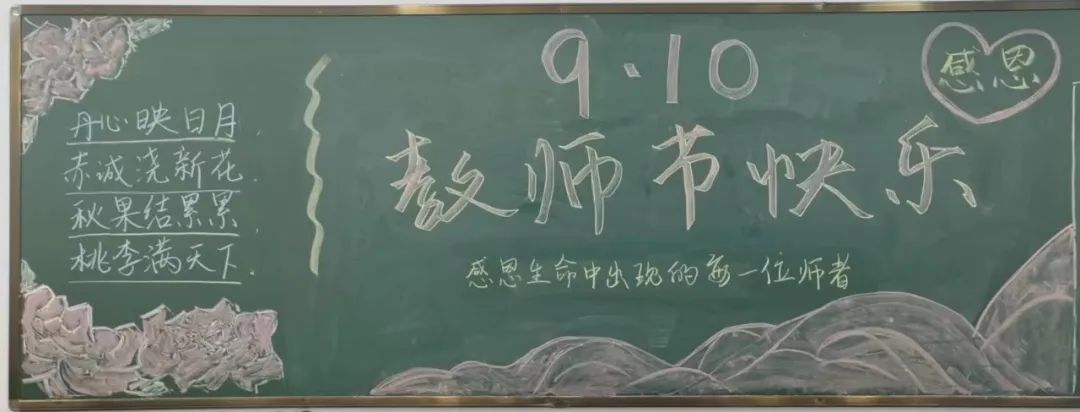 丹心映日月，
赤诚浇新花.
秋果结累累，
桃李满天下.
9.10
感恩
教师节快乐
感恩生命中出现的每一位师者